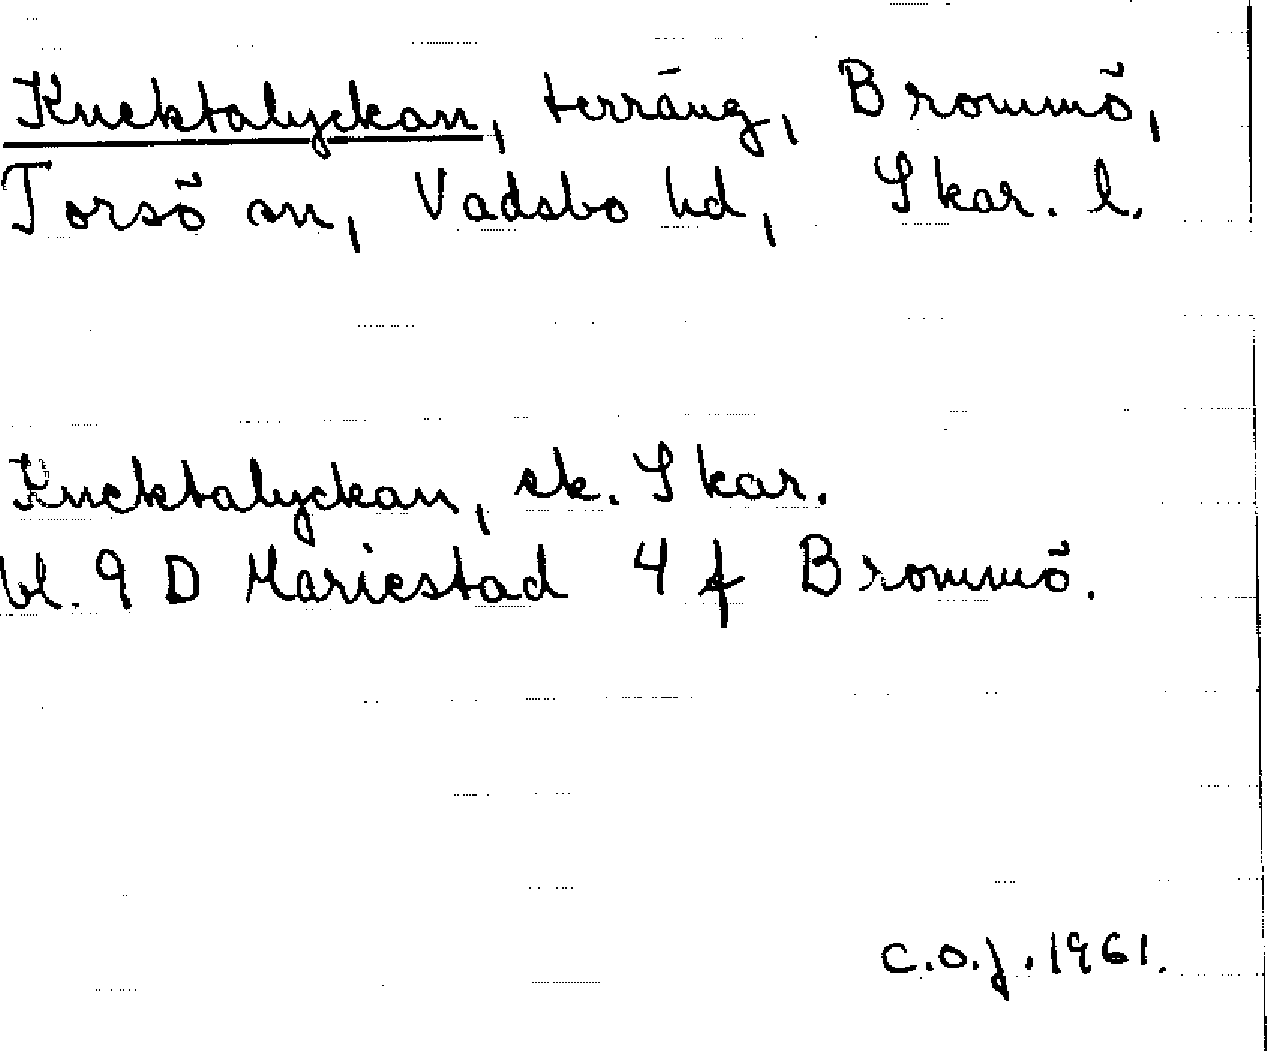 Knecktalyckan, terräng, Brommö,
Torsö sn, Vadsbo hd, Skar. l.
Knecktalyckan, ek. Skar.
bl. 9 D Mariestad 4 f Brommö.
C.O.J. 1961.